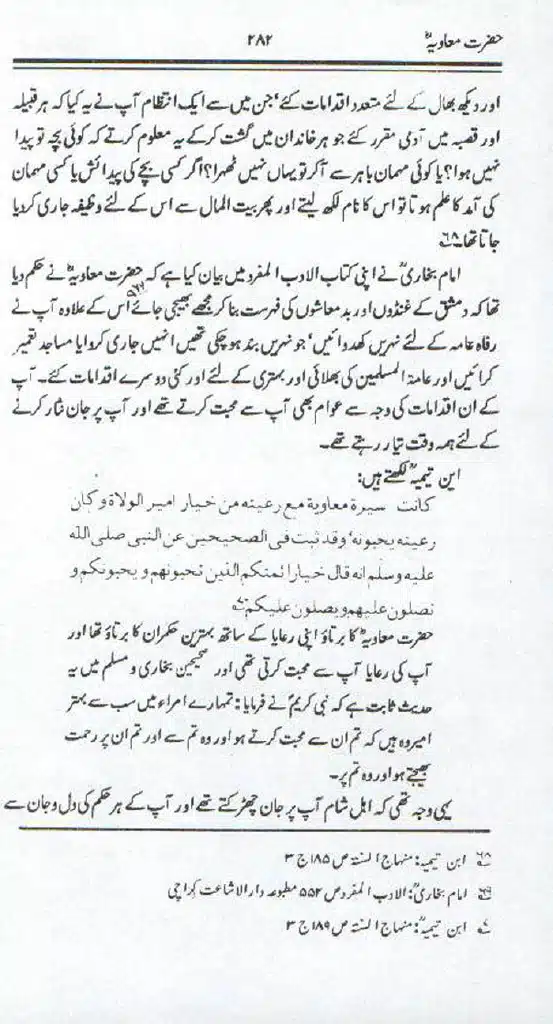 حضرت معاویہؓ ۲۸۲
اور دیکھ بھال کے لئے متعدد اقدامات کئے، جن میں سے ایک انتظام آپ نے یہ کیا کہ ہر قبیلہ
اور قصبہ میں آدمی مقرر کئے جو ہر خاندان میں گشت کر کے یہ معلوم کرتے کہ کوئی بچہ تو پیدا
نہیں ہوا؟ یا کوئی مہمان باہر سے آکر تو یہاں نہیں ٹھہرا؟ اگر کسی بچے کی پیدائش یا کسی مہمان
کی آمد کا علم ہوتا تو اس کا نام لکھ لیتے اور پھر بیت المال سے اس کے لئے وظیفہ جاری کر دیا
جاتا تھا۔ ۶۸
امام بخاریؒ نے اپنی کتاب الادب المفرد میں بیان کیا ہے کہ حضرت معاویہؓ نے حکم دیا
تھا کہ دمشق کے غنڈوں اور بدمعاشوں کی فہرست بنا کر مجھے بھیجی جائے ۶۹ اس کے علاوہ آپ نے
رفاہ عامہ کے لئے نہریں کھدوائیں، جو نہریں بند ہو چکی تھیں انہیں جاری کروایا مساجد تعمیر
کرائیں اور عامۃ المسلمین کی بھلائی اور بہتری کے لئے اور کئی دوسرے اقدامات کئے۔ آپ
کے ان اقدامات کی وجہ سے عوام بھی آپ سے محبت کرتے تھے اور آپ پر جان نثار کرنے
کے لئے ہمہ وقت تیار رہتے تھے۔
ابن تیمیہؒ لکھتے ہیں:
کانت سیرة معاویة مع رعیته من خیار امیر الولاة وکان
رعیته یحبونه، وقد ثبت فی الصحیحین عن النبی صلی اللہ
علیه وسلم انه قال خیار ائمتکم الذین تحبونهم و یحبونکم و
تصلون علیهم ویصلون علیکم ۷۰
حضرت معاویہؓ کا برتاؤ اپنی رعایا کے ساتھ بہترین حکمران کا برتاؤ تھا اور
آپ کی رعایا آپ سے محبت کرتی تھی اور صحیحین بخاری و مسلم میں یہ
حدیث ثابت ہے کہ نبی کریمؐ نے فرمایا: تمہارے امراء میں سب سے بہتر
امیر وہ ہیں کہ تم ان سے محبت کرتے ہو اور وہ تم سے اور تم ان پر رحمت
بھیجتے ہو اور وہ تم پر۔
یہی وجہ تھی کہ اہل شام آپ پر جان چھڑکتے تھے اور آپ کے ہر حکم کی دل و جان سے
۶۸ ابن تیمیہؒ: منہاج السنۃ ص ۱۸۵ ج ۳
۶۹ امام بخاریؒ: الادب المفرد ص ۵۵۲ مطبوعہ دار الاشاعت کراچی
۷۰ ابن تیمیہؒ: منہاج السنۃ ص ۱۸۹ ج ۳